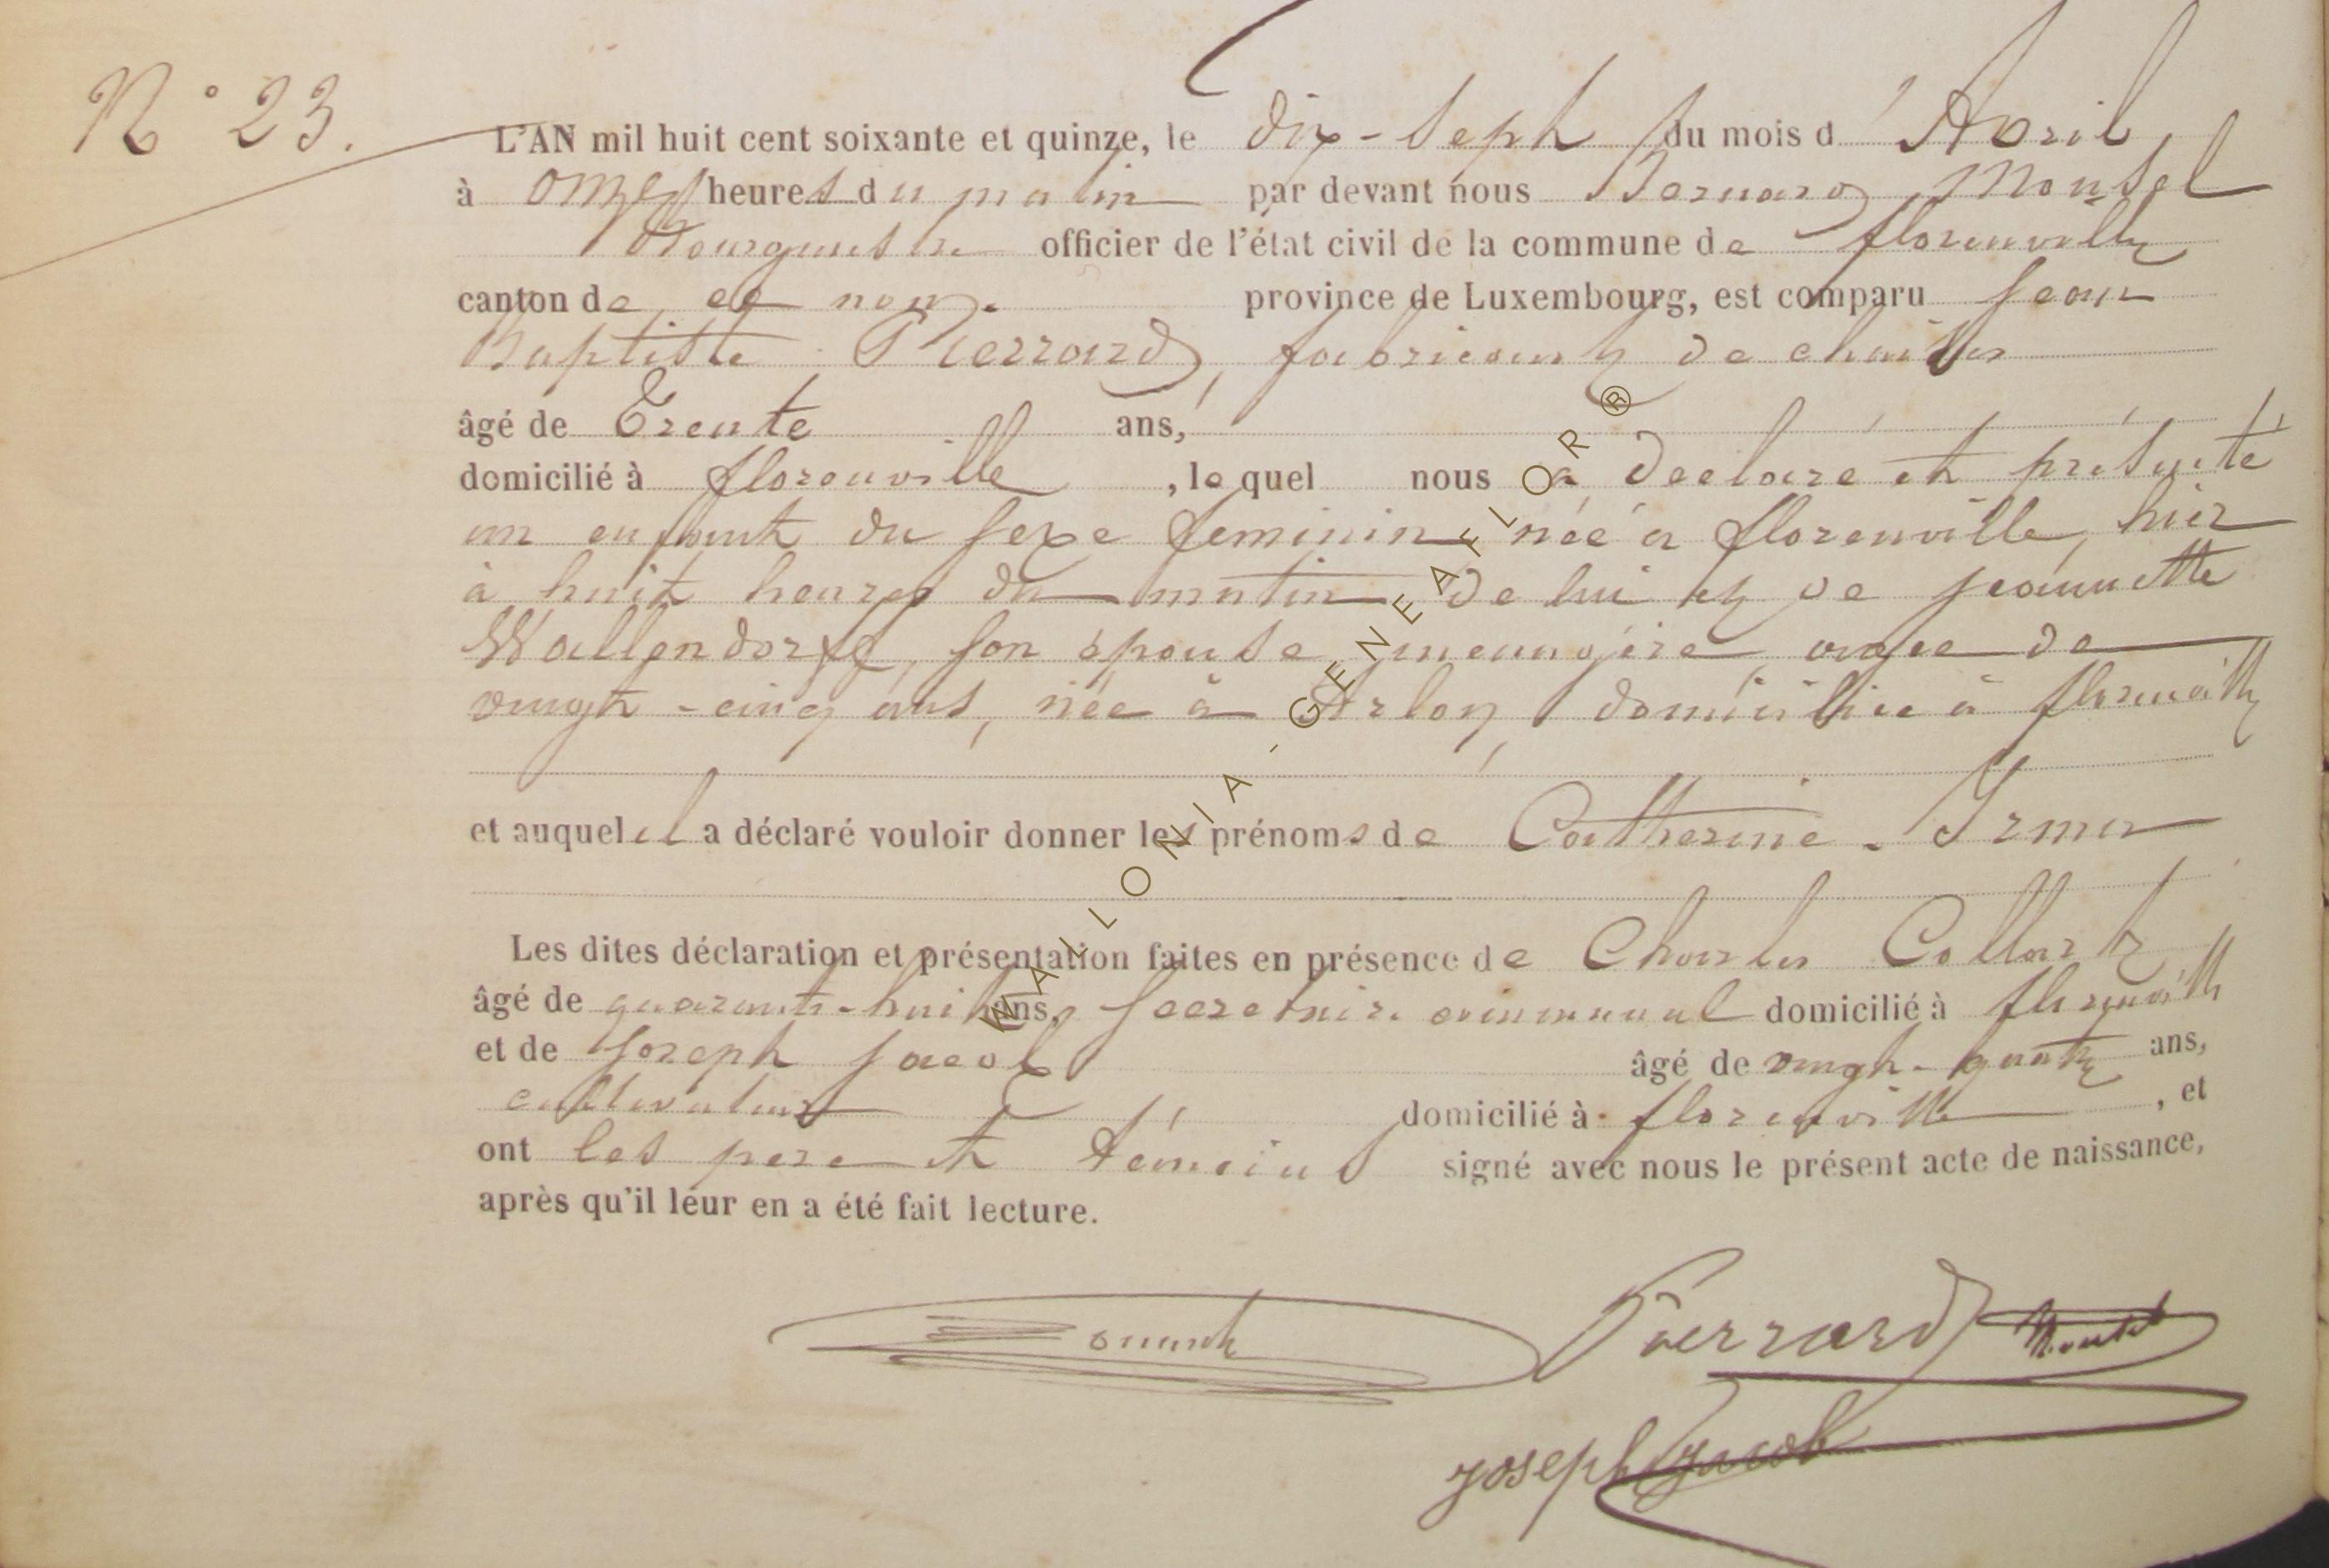 N° 23.
L'AN mil huit cent soixante et quinze, le dix-sept du mois d'Avril
à onze heures du matin par devant nous Bernard Monsel
Bourgmestre officier de l'état civil de la commune de florenville
canton de ce nom. province de Luxembourg, est comparu Jean
Baptiste Pierrard, fabricant de chaises
âgé de Trente ans,
domicilié à florenville, lequel nous a déclaré et présenté
un enfant du sexe feminin née à florenville, hier
à huit heures du matin de lui et de Jeannette
Wallendorff, son épouse, menagère agée de
vingt-cinq ans, née à Arlon, domiciliée à florenville
et auquel il a déclaré vouloir donner les prénoms de Catherine - Irma
Les dites déclaration et présentation faites en présence de Charles Collart
âgé de quarante-huit ans, Secretaire communal domicilié à florenville
et de Joseph Jacob âgé de vingt-quatre ans,
cultivateur domicilié à florenville, et
ont les pere et témoins signé avec nous le présent acte de naissance,
après qu'il leur en a été fait lecture.
Pierrard Monsel
Joseph Jacob
WALLONIA - GENEAFLOR ®